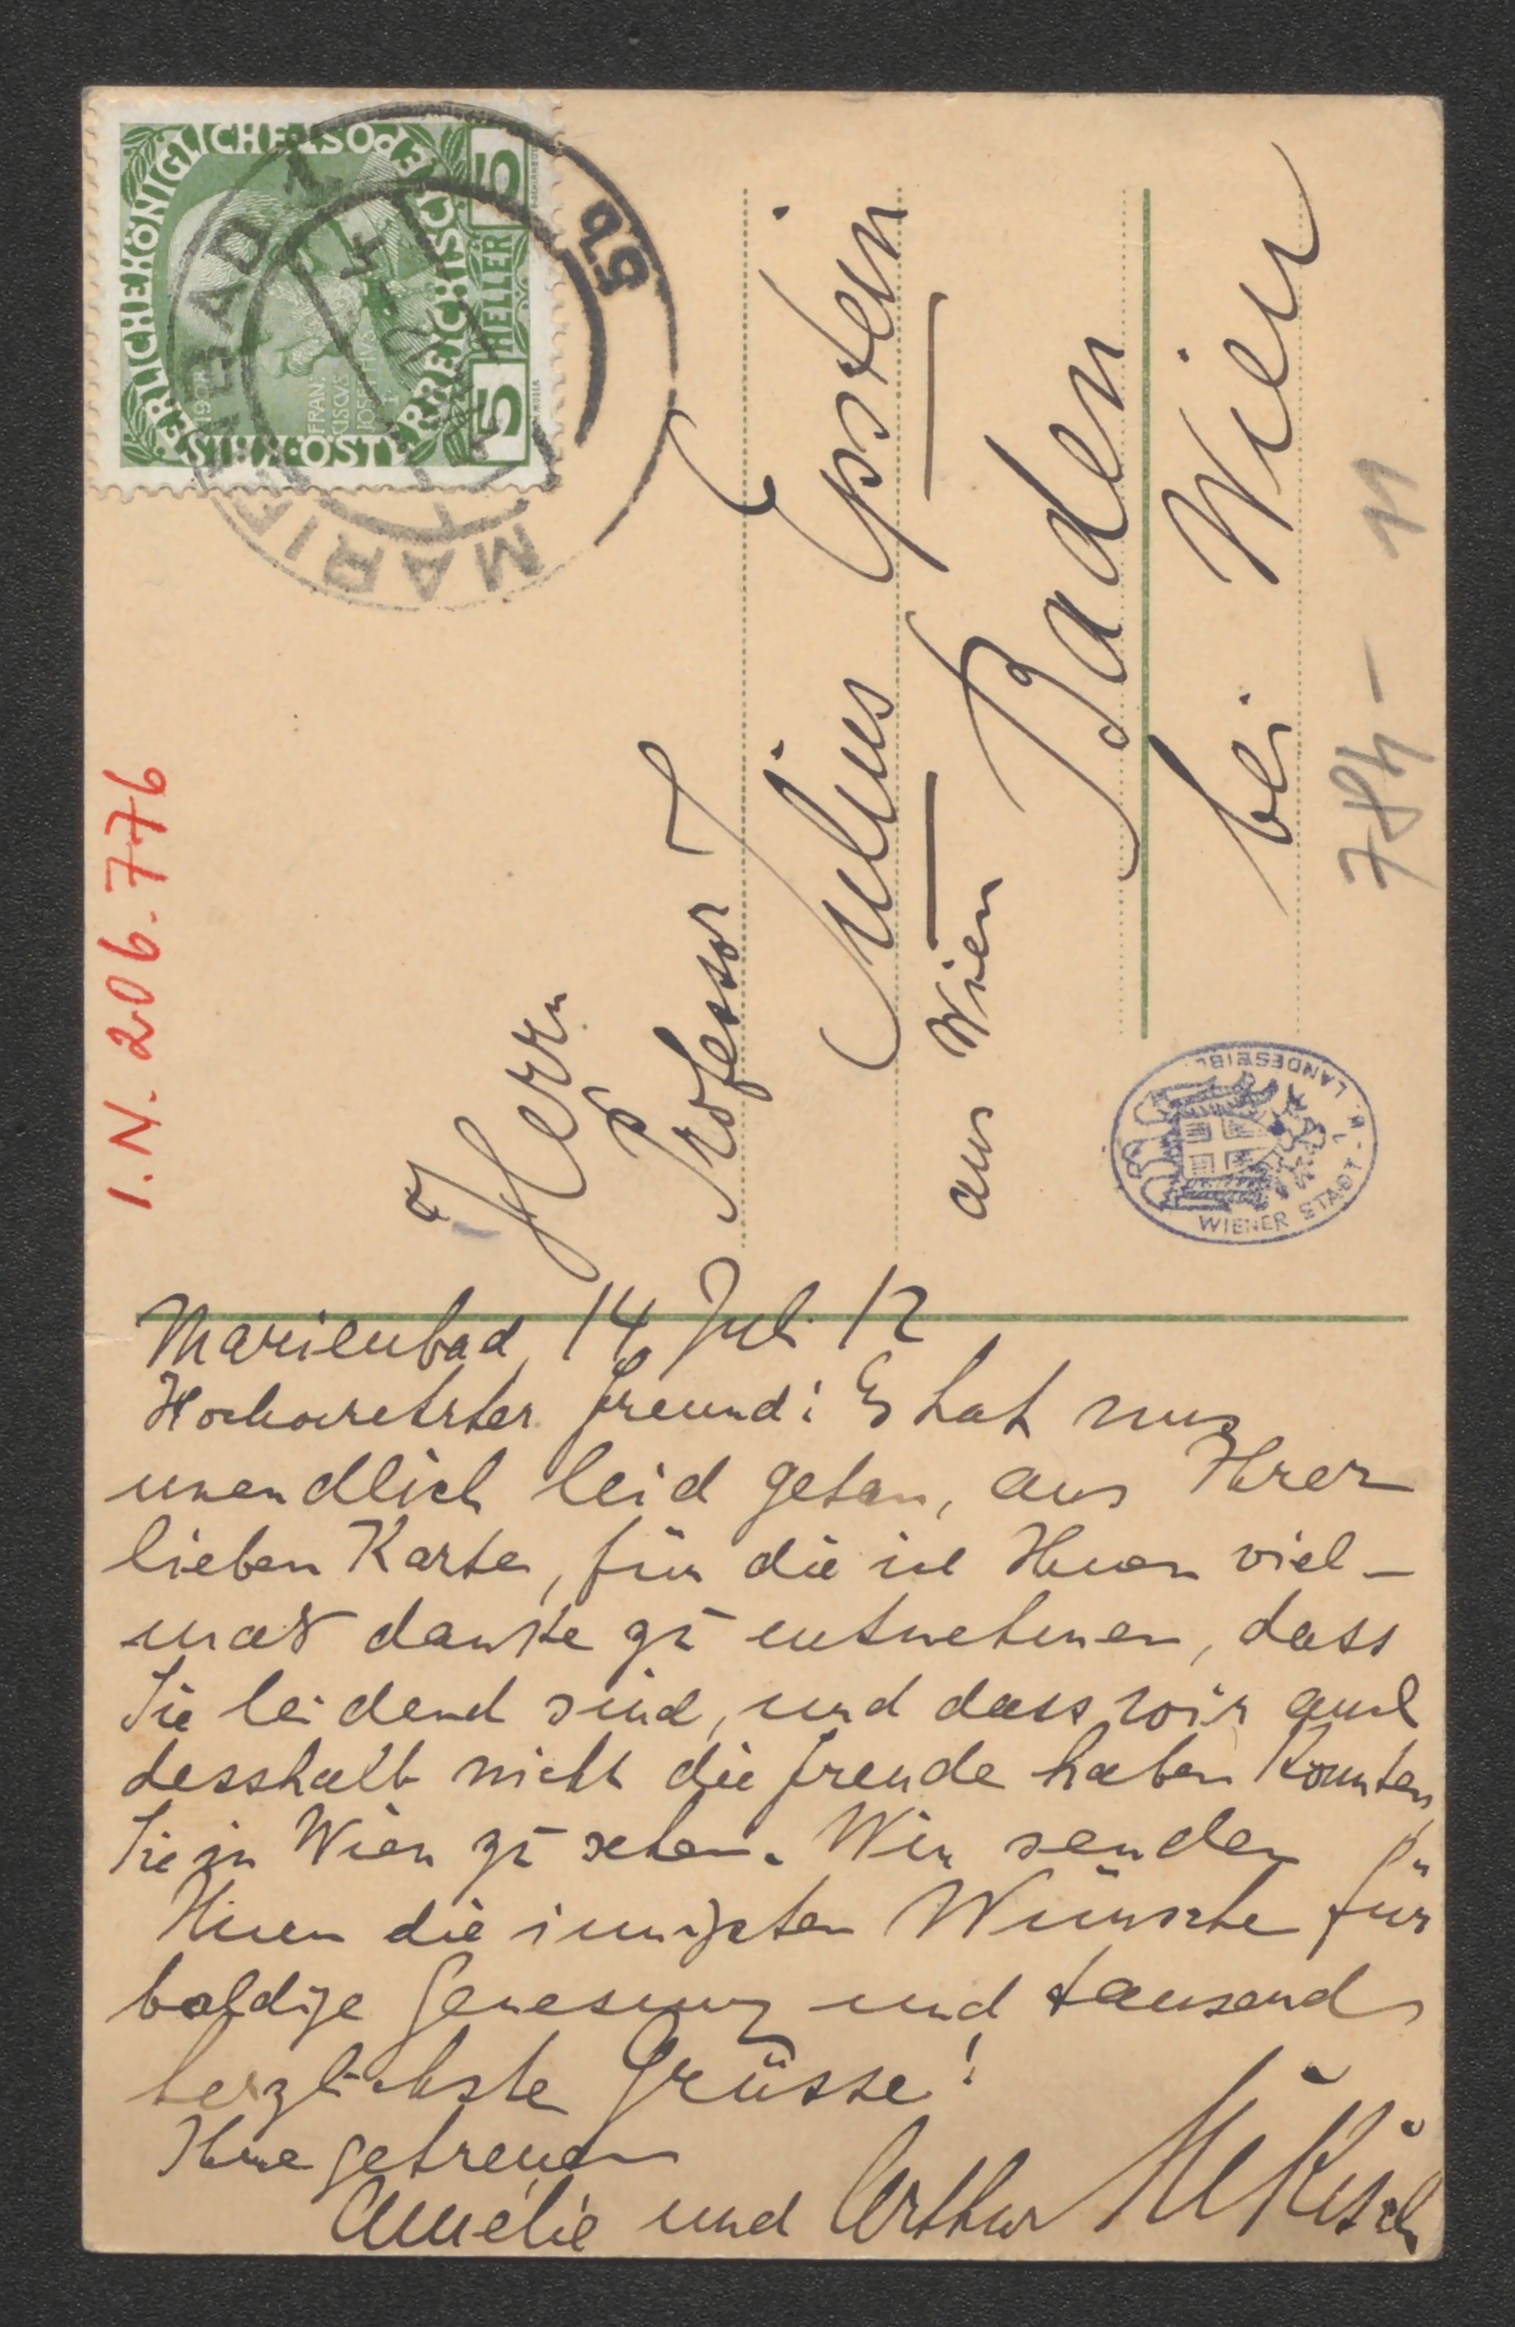 KAISERLICHEKÖNIGLICHE ÖSTERREICHISCHE POST
5 HELLER 5
FRAN.
CISCVS
JOSEPHVS
1908
MARIENBAD 1
9b
I.N. 206.776
Herrn
Professor
Julius Epstein
aus Wien
Baden
bei Wien
784 - 11
WIENER STADT- U. LANDESBIBL.
Marienbad, 14 Juli 12
Hochverehrter Freund! Es hat uns
unendlich leid getan, aus Ihrer
lieben Karte, für die ich Ihnen viel-
mals danke zu entnehmen, dass
Sie leidend sind, und dass wir auch
desshalb nicht die Freude haben konnten,
Sie in Wien zu sehen. Wir senden
Ihnen die innigsten Wünsche für
baldige Genesung und tausend
herzlichste Grüsse!
Ihre getreuen
Amélie und Arthur Nikisch